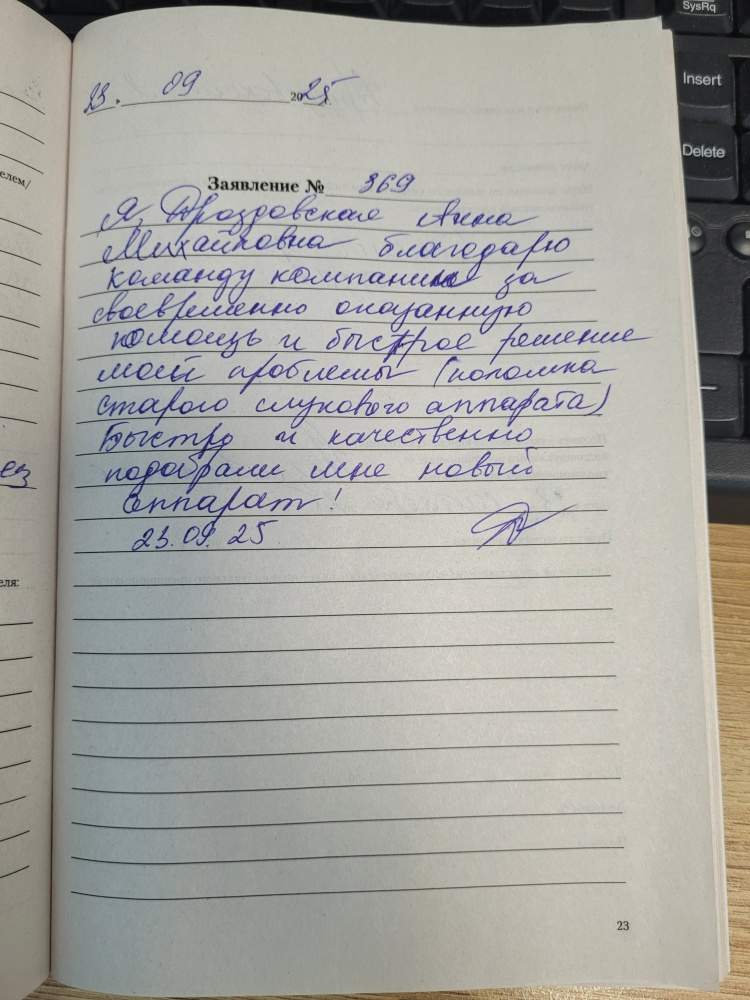 SysRq
Insert
Delete
елем/
ез
еля:
23. 09 2025
Заявление № 369
Я, Дроздовская Анна
Михайловна благодарю
команду компании за
своевременно оказанную
помощь и быстрое решение
моей проблемы (поломка
старого слухового аппарата)
Быстро и качественно
подобрали мне новый
аппарат!
23.09.25
23